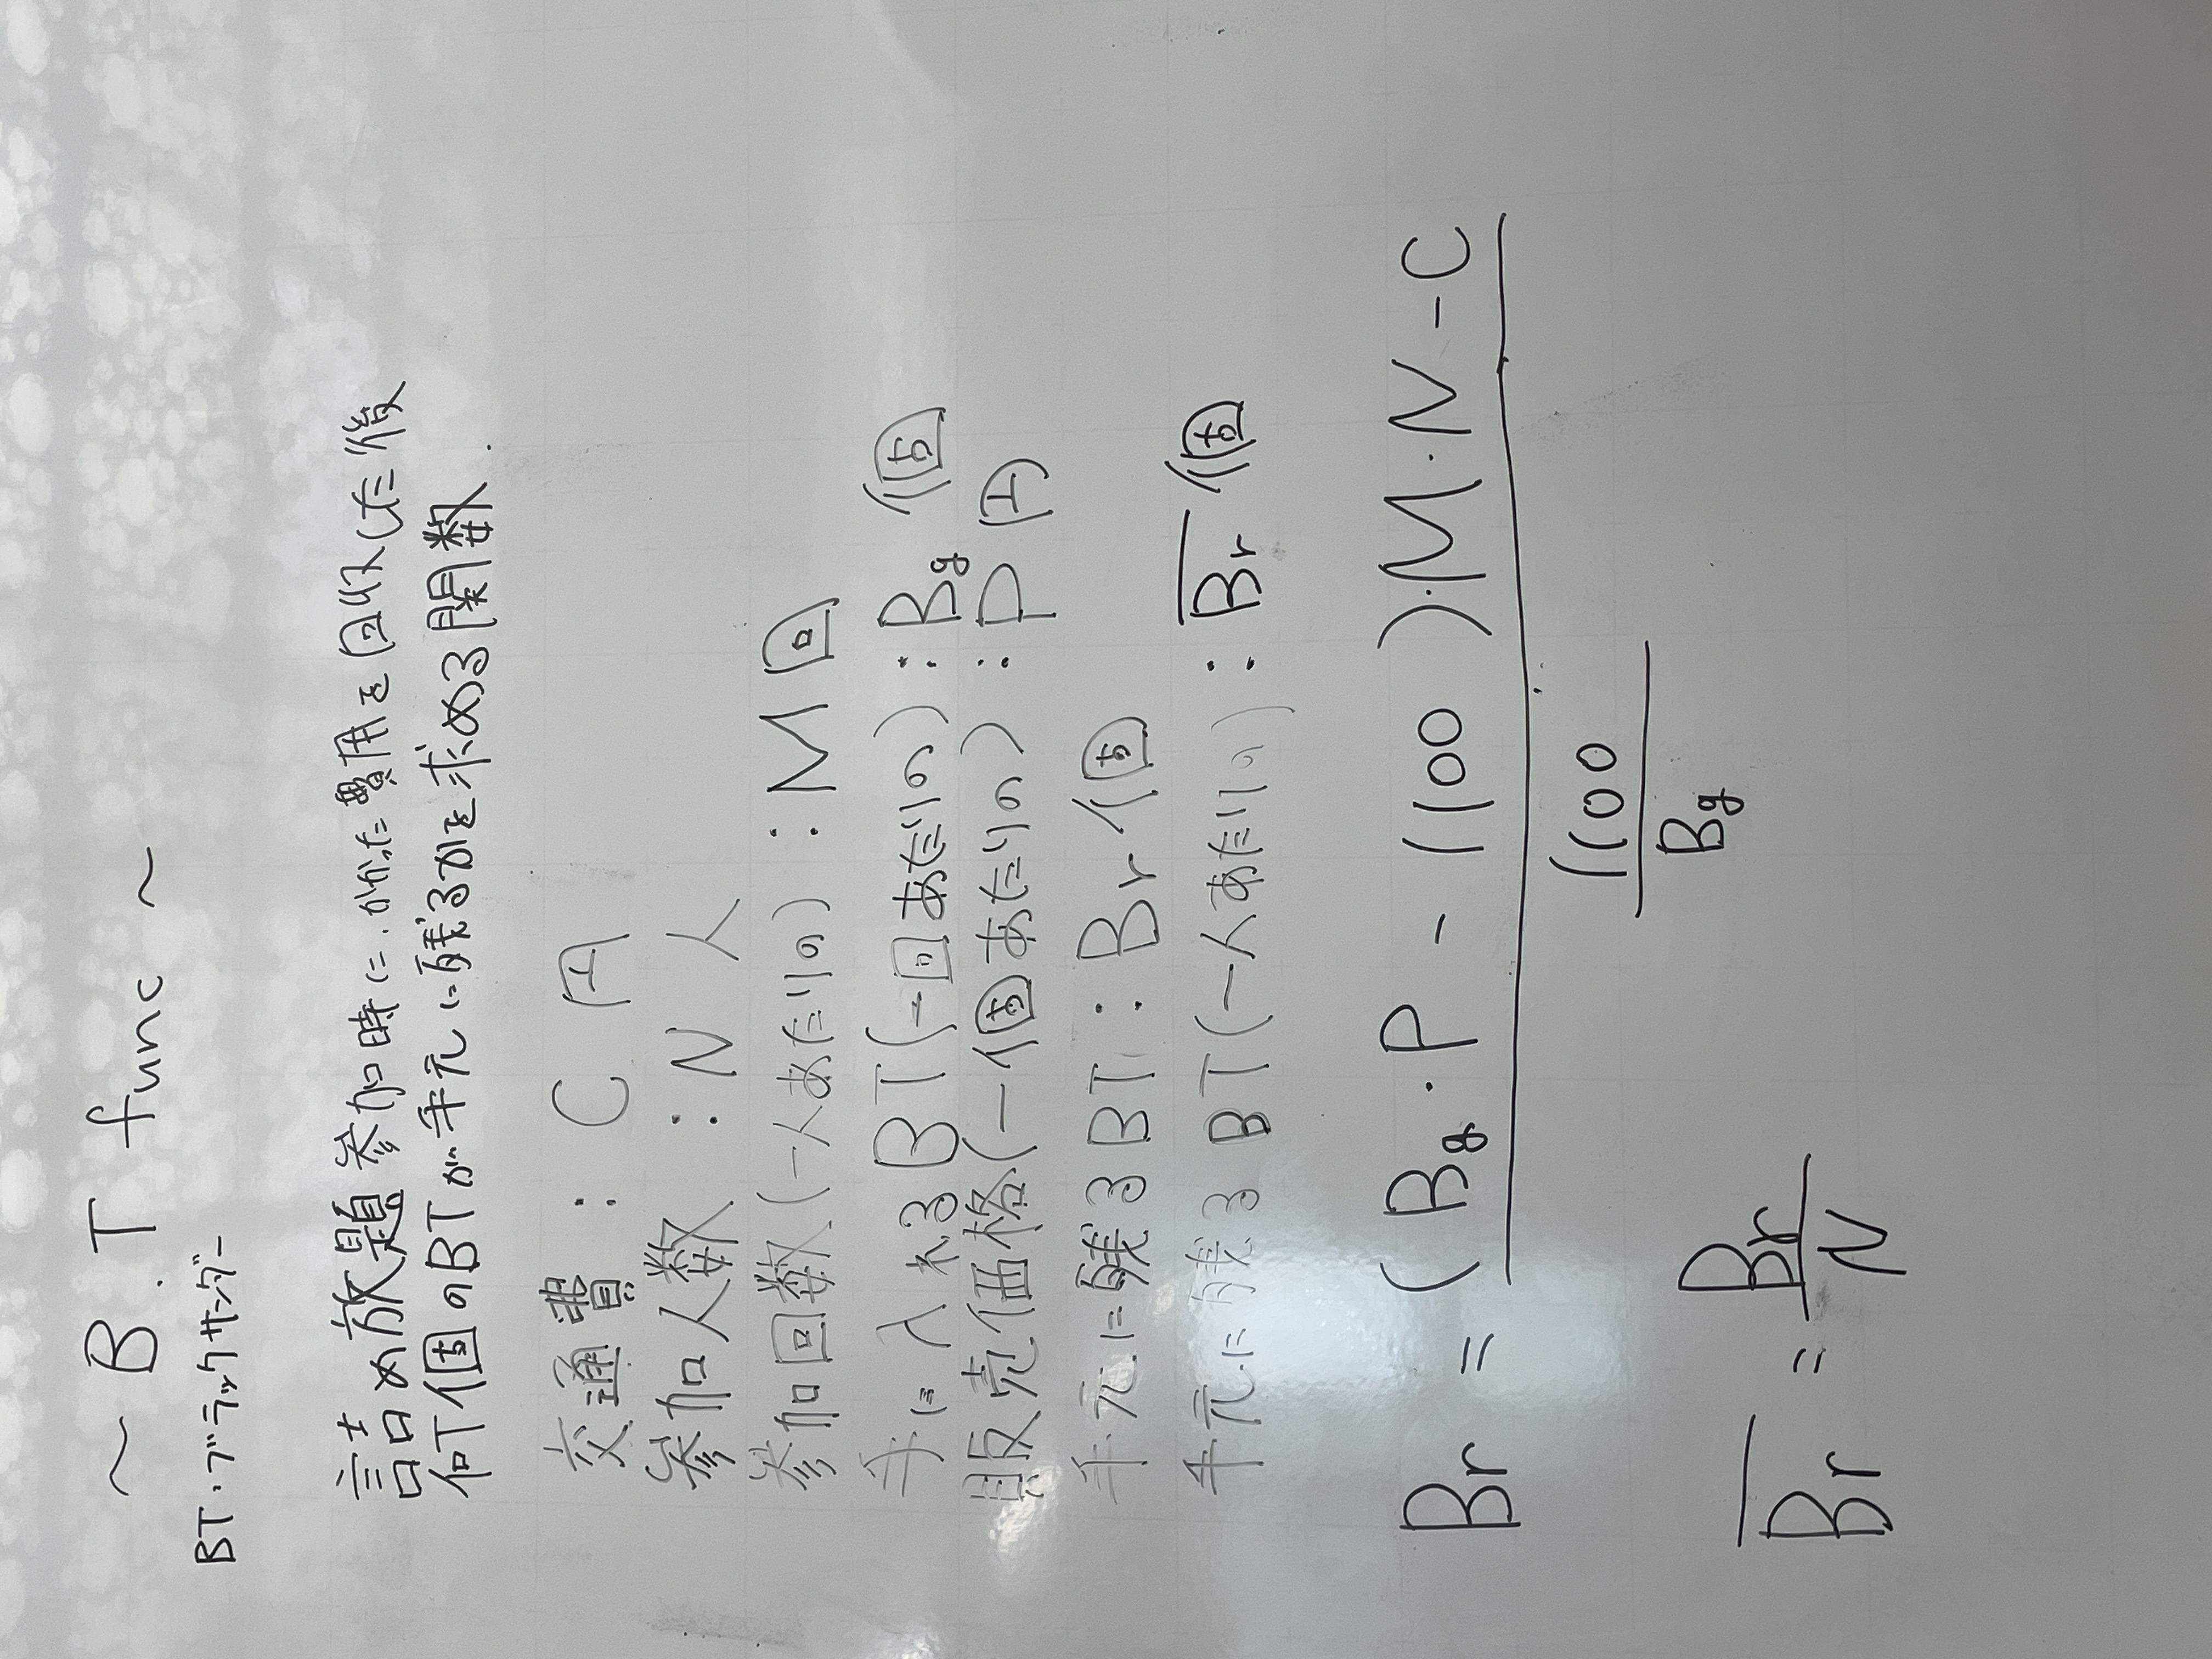 ～ B.T func ～
BT・ブラックサンダー
詰め放題参加時に、かかった費用を回収した後
何個のBTが手元に残るかを求める関数.
交通費 : C 円
参加人数 : N 人
参加回数(一人あたりの) : M 回
手に入れるBT(一回あたりの) : Bg 個
販売価格(一個あたりの) : P 円
手元に残るBT : Br 個
手元に残るBT(一人あたりの) : B̅r̅ 個
Br = (Bg・P - 1100)・M・N - C
1100
Bg
B̅r̅ = Br
N